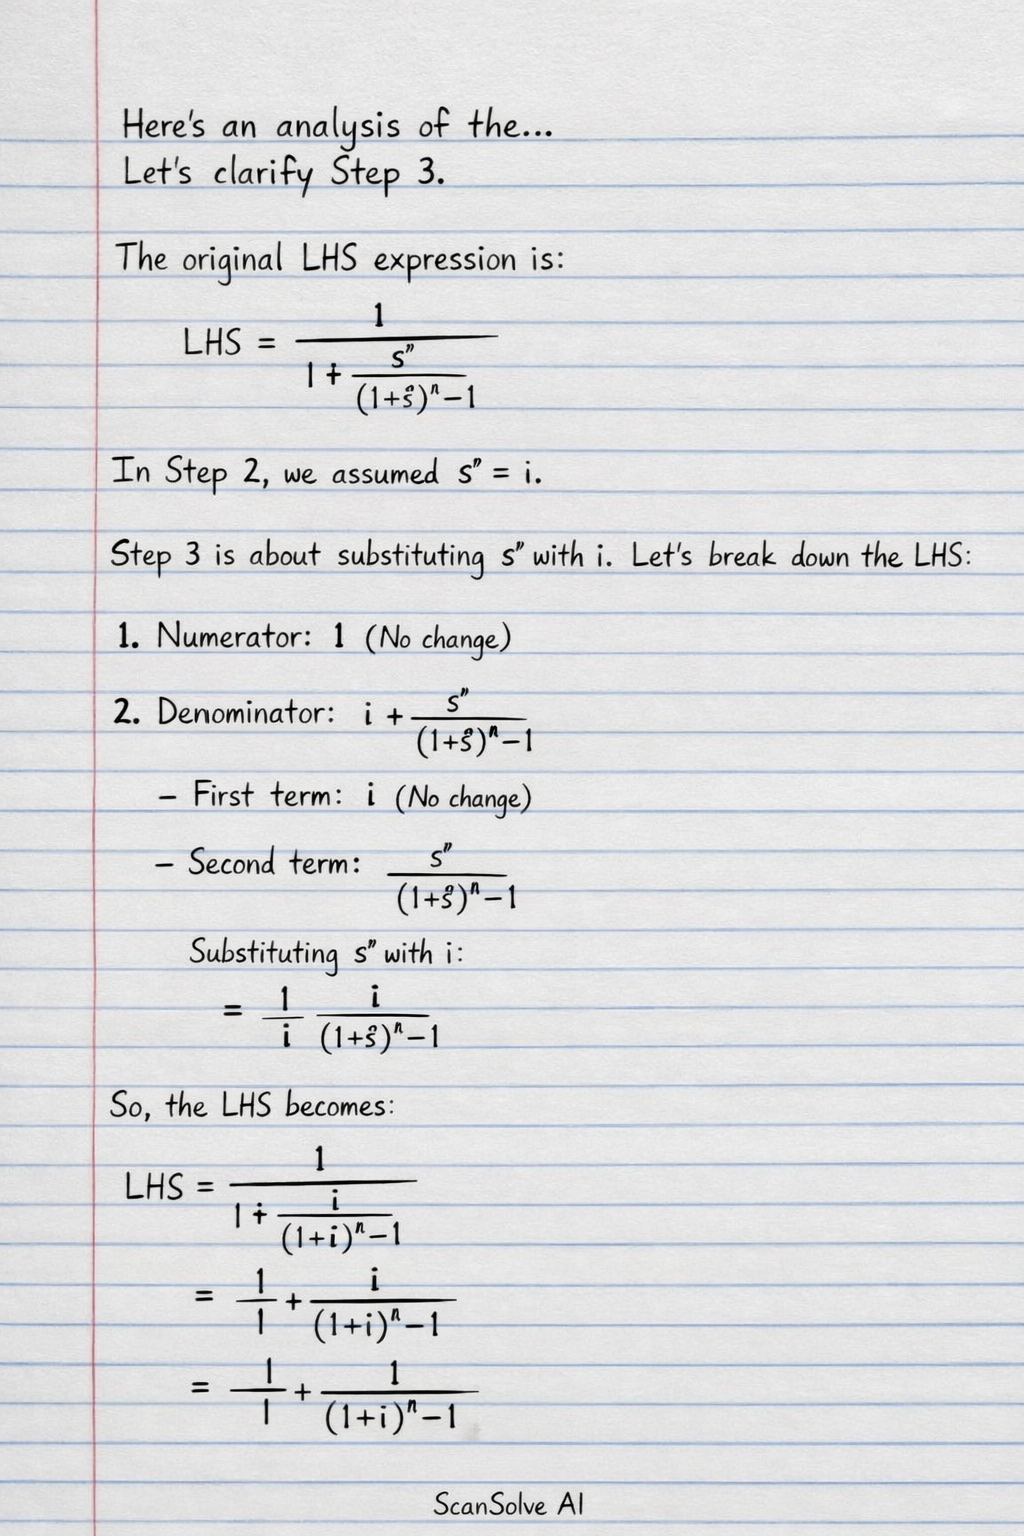 Here's an analysis of the...
Let's clarify Step 3.
The original LHS expression is:
LHS = 1 / (1 + s" / ((1+ŝ)ⁿ−1))
In Step 2, we assumed s" = i.
Step 3 is about substituting s" with i. Let's break down the LHS:
1. Numerator: 1 (No change)
2. Denominator: i + s" / ((1+ŝ)ⁿ−1)
– First term: i (No change)
– Second term: s" / ((1+ŝ)ⁿ−1)
Substituting s" with i:
= 1/i i / ((1+ŝ)ⁿ−1)
So, the LHS becomes:
LHS = 1 / (1 + i / ((1+i)ⁿ−1))
= 1/1 + i / ((1+i)ⁿ−1)
= 1/1 + 1 / ((1+i)ⁿ−1)
ScanSolve AI